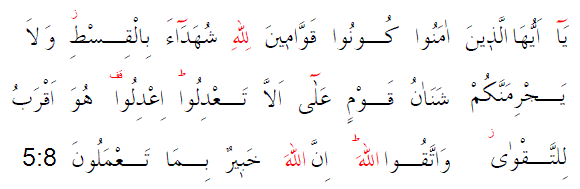 يَٓا اَيُّهَا الَّذٖينَ اٰمَنُوا كُـــونُوا قَوَّامٖينَ لِلّٰهِ شُهَدَٓاءَ بِالْقِـــسْطِؗ وَلَا
يَـــجْرِمَنَّكُمْ شَنَاٰنُ قَـــوْمٍ عَلٰٓى اَلَّا تَـــعْدِلُواؕ اِعْدِلُوا۠ هُوَ اَقْرَبُ
لِلتَّـــقْوٰىؗ وَاتَّقُـــوا اللّٰهَؕ اِنَّ اللّٰهَ خَبٖيرٌ بِـــمَا تَـــعْمَلُونَ 5:8